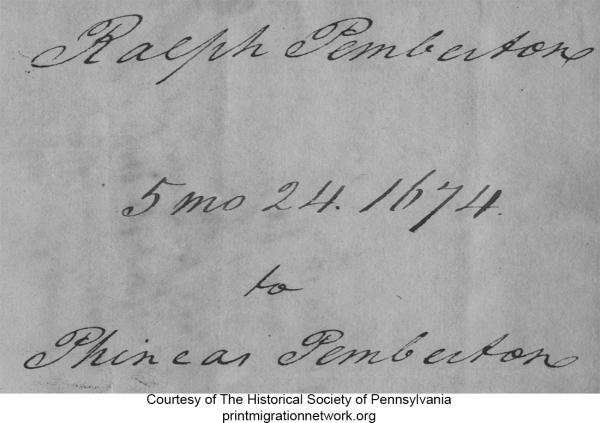 Ralph Pemberton
5 mo 24. 1674.
to
Phineas Pemberton
Courtesy of The Historical Society of Pennsylvania
printmigrationnetwork.org